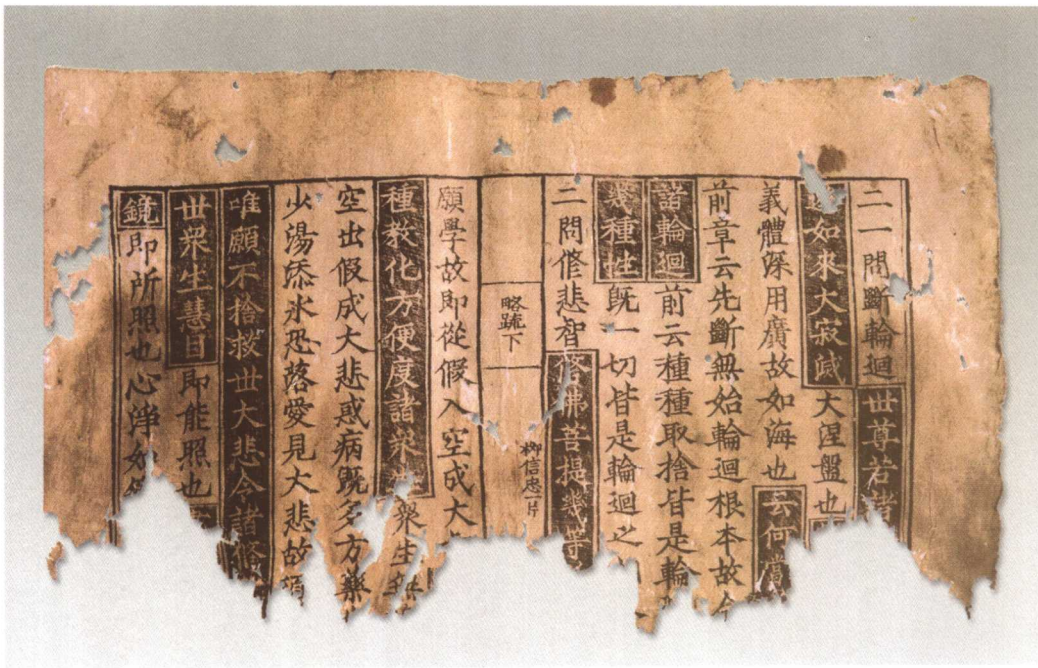 二一問斷輪迴世尊若諸
如來大寂滅大涅盤也
義體深用廣故如海也云何當
前章云先斷無始輪迴根本故今
諸輪迴前云種種取捨皆是輪
幾種性既一切皆是輪迴之
二問修悲智修佛菩提幾等
略疏下
柳信忠一片
願學故即從假入空成大
種教化方便度諸衆生衆生無
空出假成大悲惑病既多方藥
少湯添氷恐落愛見大悲故須
唯願不捨救世大悲令諸修
世衆生慧目即能照也
鏡即所照也心淨如